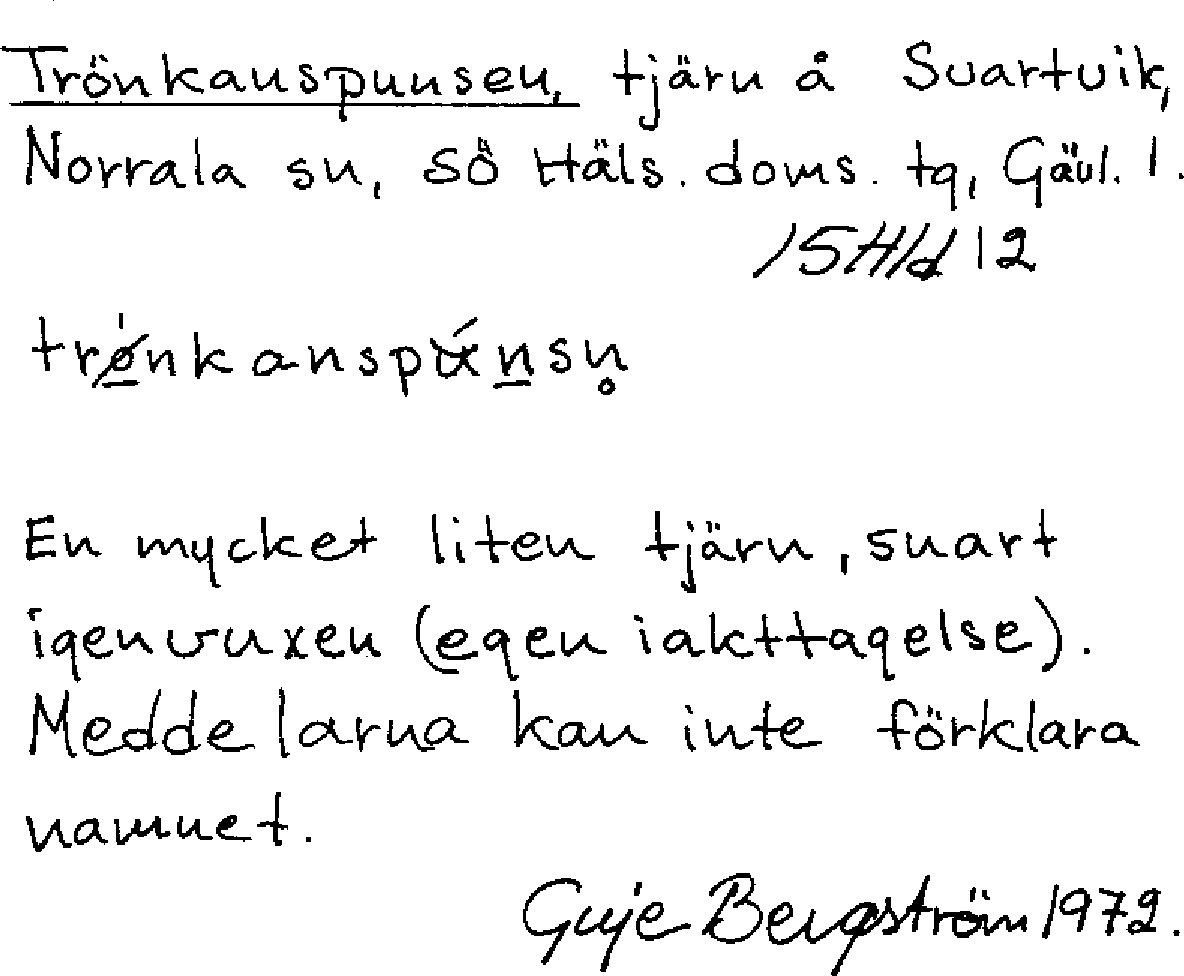 Trönkanspunsen, tjärn å Svartvik,
Norrala sn, SÖ Häls. doms. tg, Gävl. l.
15H1d 12
trǿ̱nkanspá̱nsn̥
En mycket liten tjärn, svart
igenvuxen (egen iakttagelse).
Meddelarna kan inte förklara
namnet.
Guje Bergström 1972.